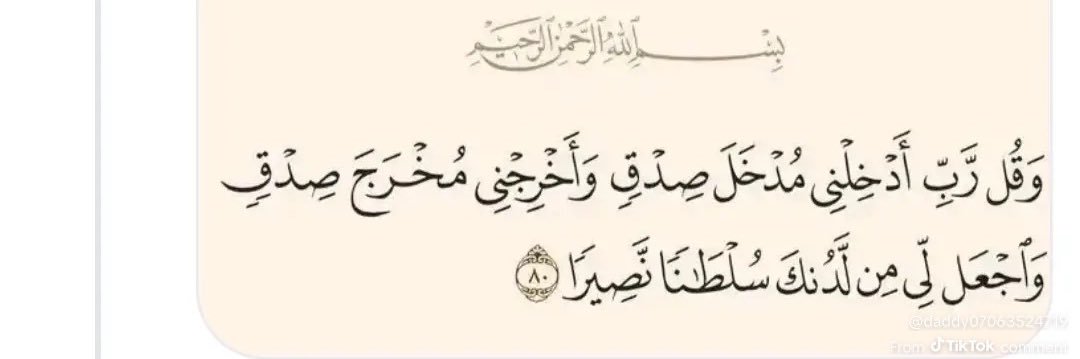 بِسْمِ ٱللَّهِ ٱلرَّحْمَٰنِ ٱلرَّحِيمِ
وَقُل رَّبِّ أَدْخِلْنِى مُدْخَلَ صِدْقٍ وَأَخْرِجْنِى مُخْرَجَ صِدْقٍ
وَٱجْعَل لِّى مِن لَّدُنكَ سُلْطَٰنًا نَّصِيرًا ٨٠
@daddy07063524719
From TikTok comment